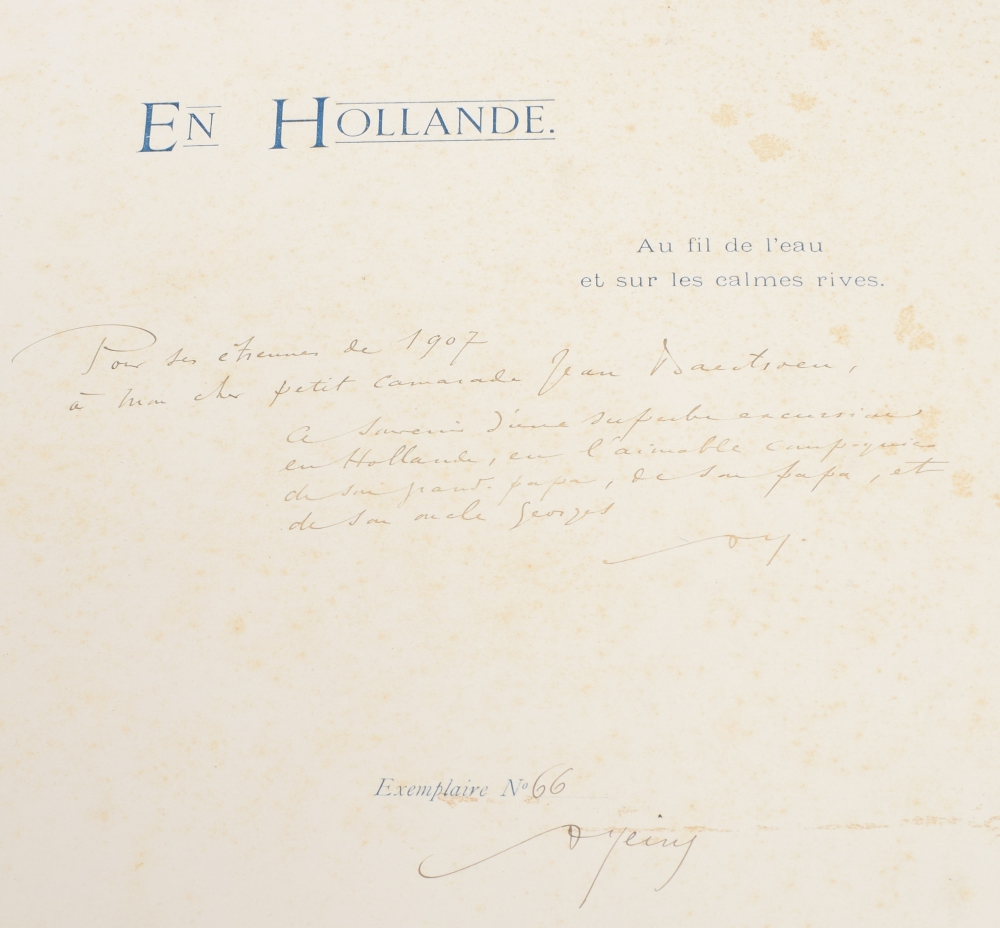 EN HOLLANDE.
Au fil de l'eau
et sur les calmes rives.
Pour ses étrennes de 1907
à mon cher petit camarade Jean
ce souvenir d'une superbe excursion
en Hollande, en l'aimable compagnie
de son grand-papa, de son papa, et
de son oncle Georges
Exemplaire Nº 66